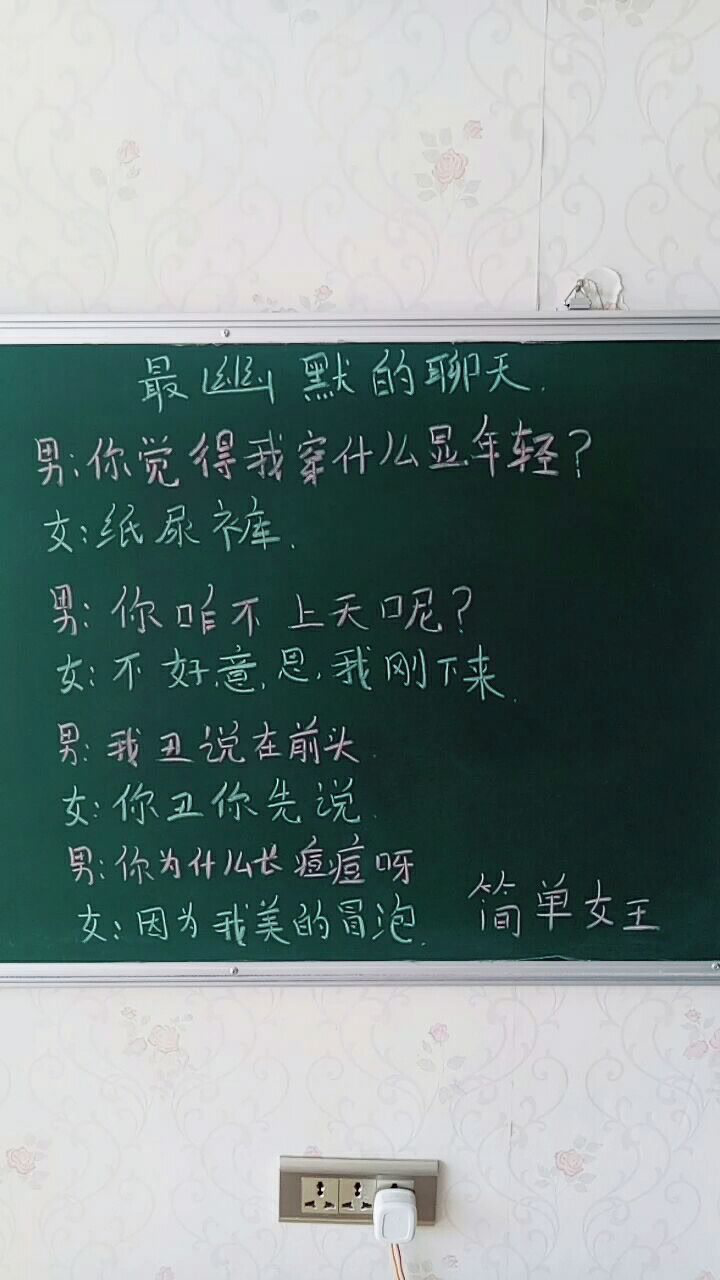 最幽默的聊天.
男:你觉得我穿什么显年轻?
女:纸尿裤.
男:你咱不上天呢?
女:不好意思,我刚下来.
男:我丑说在前头
女:你丑你先说.
男:你为什么长痘痘呀
女:因为我美的冒泡.
简单女王